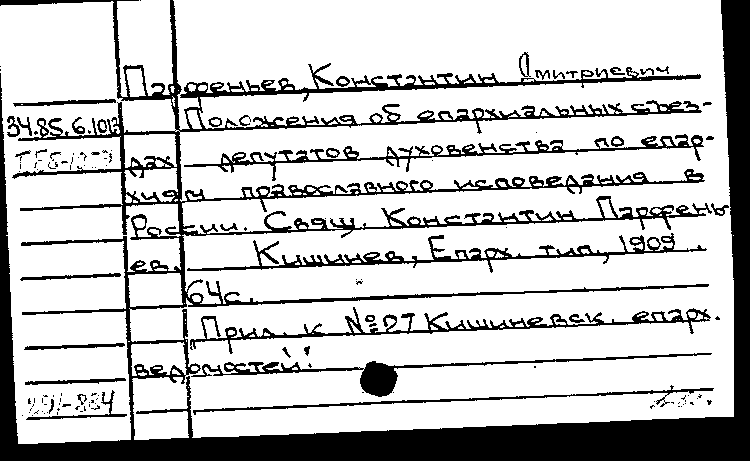 Парфеньев, Константин Дмитриевич
34.85.6.1013 Положения об епархиальных съез-
дах депутатов духовенства по епар-
хиям православного исповедания в
России. Свящ. Константин Парфень-
ев. Кишинев, Епарх. тип., 1909.
64с.
"Прил. к №27 Кишиневск. епарх.
ведомостей".
291-884